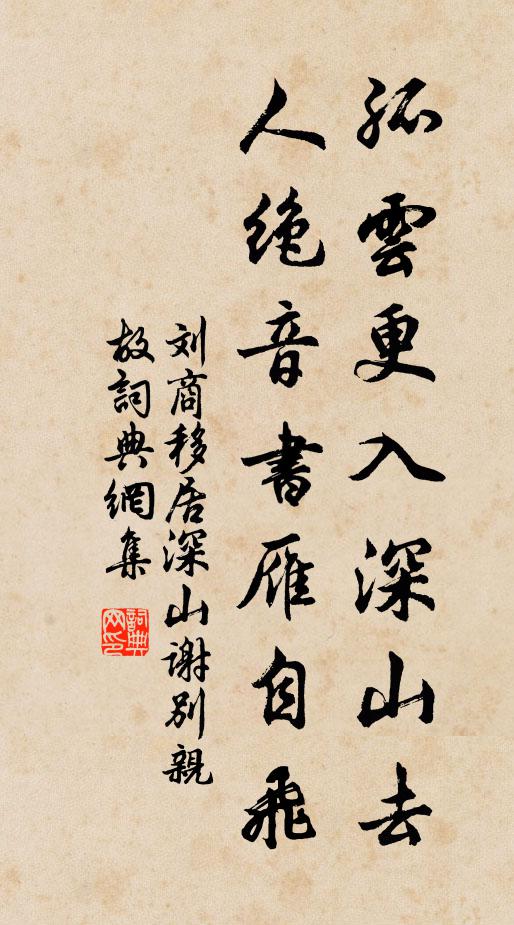 孤雲更入深山去
人絶音書雁自飛
刘商移居深山謝别親
故詞典網集
詞典网印